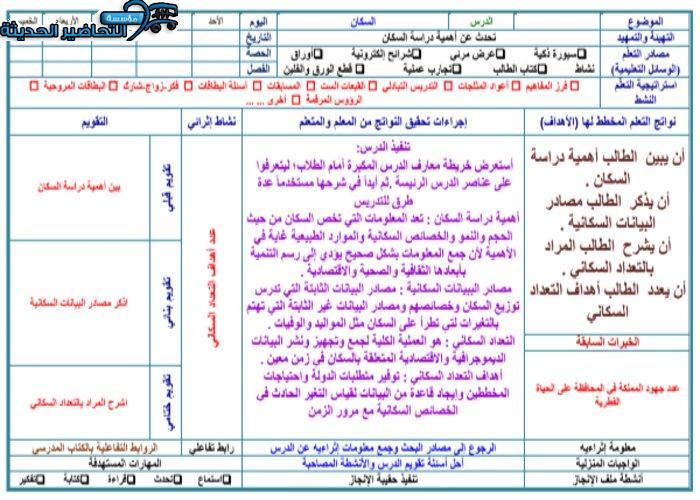 مؤسسة
التحاضير الحديثة
الموضوع
الدرس
السكان
اليوم
الأحد
الأربعاء
التهيئة والتمهيد
تحدث عن أهمية دراسة السكان
التاريخ
مصادر التعلم
(الوسائل التعليمية)
سبورة ذكية
عرض مرئي
شرائح إلكترونية
أوراق
نشاط
كتاب الطالب
تجارب عملية
قطع الورق والفلين
الحصة
الفصل
استراتيجية التعلم
النشط
فرز المفاهيم
أعواد المثلجات
التدريس التبادلي
القبعات الست
المسابقات
أسئلة البطاقات
فكر-زواج-شارك
البطاقات المروحية
الرؤوس المرقمة
أخرى ... ...
نواتج التعلم المخطط لها (الأهداف)
إجراءات تحقيق النواتج من المعلم والمتعلم
نشاط إثرائي
التقويم
أن يبين الطالب أهمية دراسة
السكان .
أن يذكر الطالب مصادر
البيانات السكانية .
أن يشرح الطالب المراد
بالتعداد السكاني .
أن يعدد الطالب أهداف التعداد
السكاني
الخبرات السابقة
عدد جهود المملكة في المحافظة على الحياة
الفطرية
تنفيذ الدرس:
أستعرض خريطة معارف الدرس المكبرة أمام الطلاب؛ ليتعرفوا
على عناصر الدرس الرئيسة .ثم أبدأ في شرحها مستخدماً عدة
طرق للتدريس
أهمية دراسة السكان : تعد المعلومات التي تخص السكان من حيث
الحجم والنمو والخصائص السكانية والموارد الطبيعية غاية في
الأهمية لأن جمع المعلومات بشكل صحيح يؤدي إلى رسم التنمية
بأبعادها الثقافية والصحية والاقتصادية .
مصادر البيانات السكانية : مصادر البيانات الثابتة التي تدرس
توزيع السكان وخصائصهم ومصادر البيانات غير الثابتة التي تهتم
بالتغيرات لتى تطرأ على السكان مثل المواليد والوفيات .
التعداد السكاني : هو العملية الكلية لجمع وتجهيز ونشر البيانات
الديموجرافية والاقتصادية المتعلقة بالسكان في زمن معين .
أهداف التعداد السكاني : توفير متطلبات الدولة واحتياجات
المخططين وإيجاد قاعدة من البيانات لقياس التغير الحادث في
الخصائص السكانية مع مرور الزمن
عدد أهداف التعداد السكاني
تقويم قبلي
بين أهمية دراسة السكان
تقويم بنائي
اذكر مصادر البيانات السكانية
تقويم ختامي
اشرح المراد بالتعداد السكاني
معلومة إثرائيه
الرجوع إلى مصادر البحث وجمع معلومات إثرائيه عن الدرس
رابط تفاعلي
الروابط التفاعلية بالكتاب المدرسي
الواجبات المنزلية
أحل أسئلة تقويم الدرس والأنشطة المصاحبة
المهارات المستهدفة
أنشطة ملف الإنجاز
تنفيذ حقيبة الإنجاز
استماع
تحدث
قراءة
كتابة
تفكير